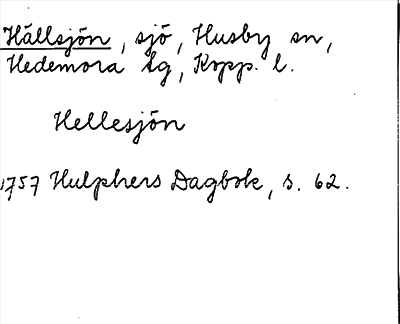 Hällsjön, sjö, Husby sn,
Hedemora tg, Kopp. l.
Hellesjön
1757 Hulphers Dagbok, s. 62.